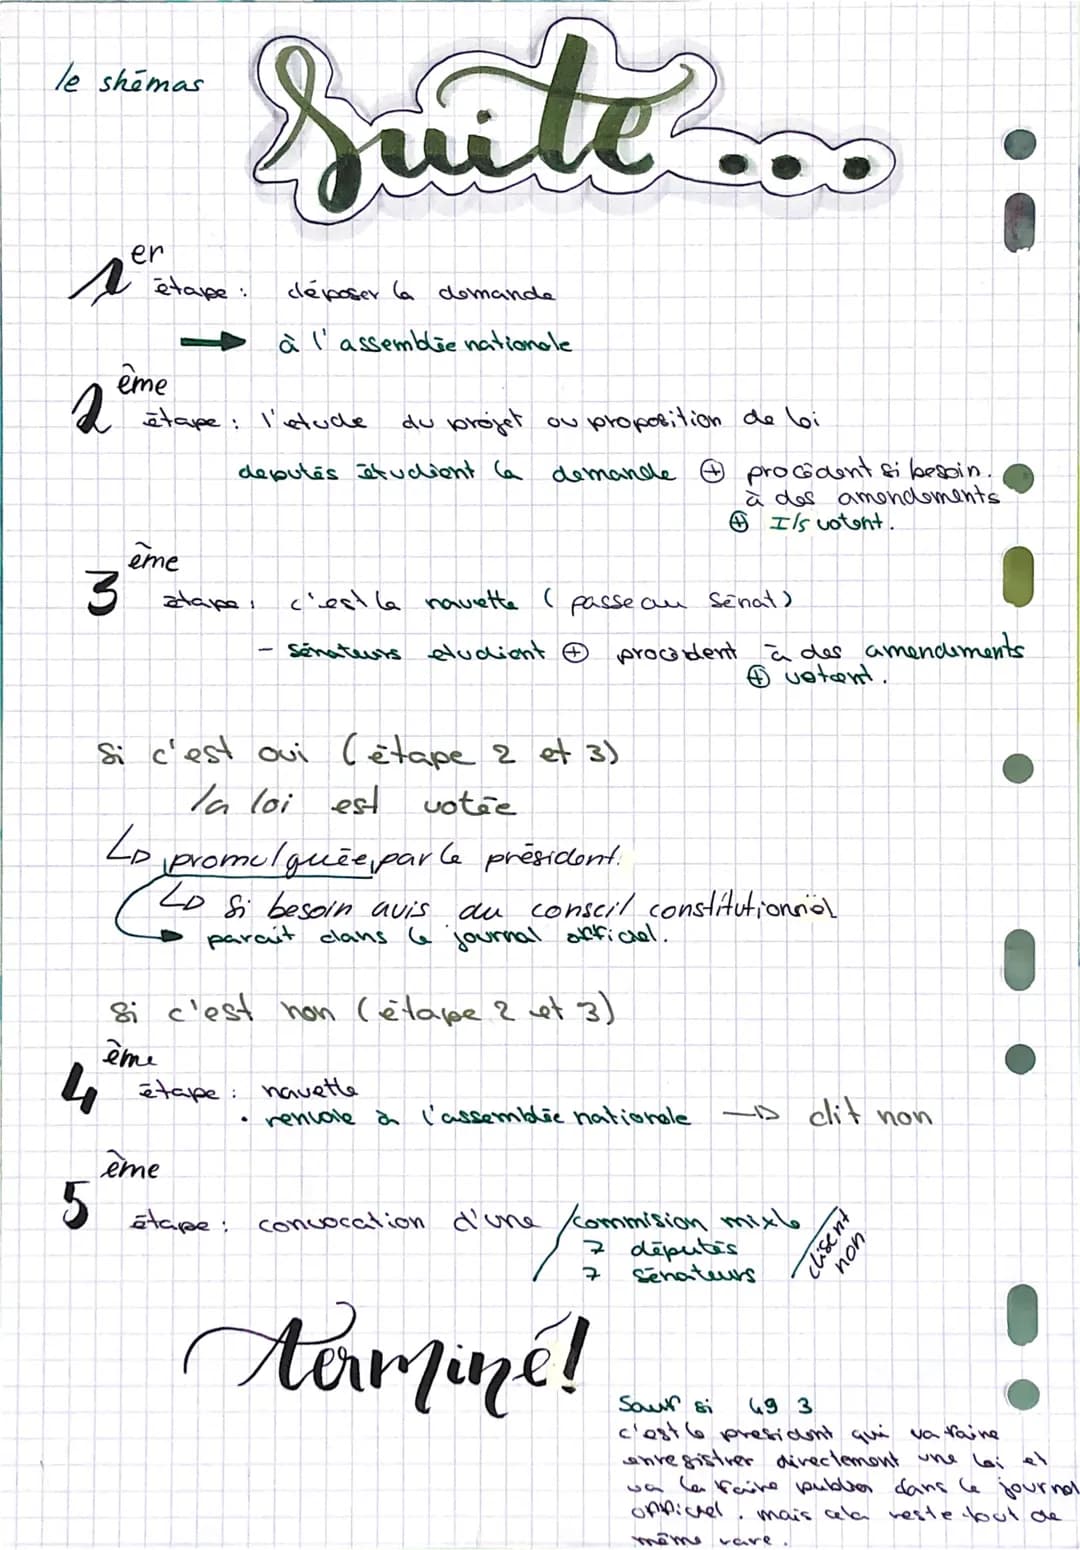 le shémas
Suite...
1er
étape : déposer la demande
à l'assemblée nationale
2ème
étape : l'etude du projet ou proposition de loi
deputés étudient la demande ⊕ procédent si besoin.
à des amendements
⊕ Ils votent.
3ème
étape : c'est la navette ( passe au Sénat )
- sénateurs etudient ⊕ procédent à des amendements
⊕ votent.
Si c'est oui (étape 2 et 3)
la loi est votée
↳ promulguée par le président.
↳ Si besoin avis du conseil constitutionnel
parait dans le journal officiel.
Si c'est non (étape 2 et 3)
4ème
étape : navette
• renvoie à l'assemblée nationale → dit non
5ème
étape : convocation d'une / commision mixte
7 députés
7 sénateurs
/ disent
non
terminé!
Sauf si 49 3
c'est le president qui va faire
enregistrer directement une loi et
va la faire publier dans le journal
officiel. mais cela reste tout de
même rare.